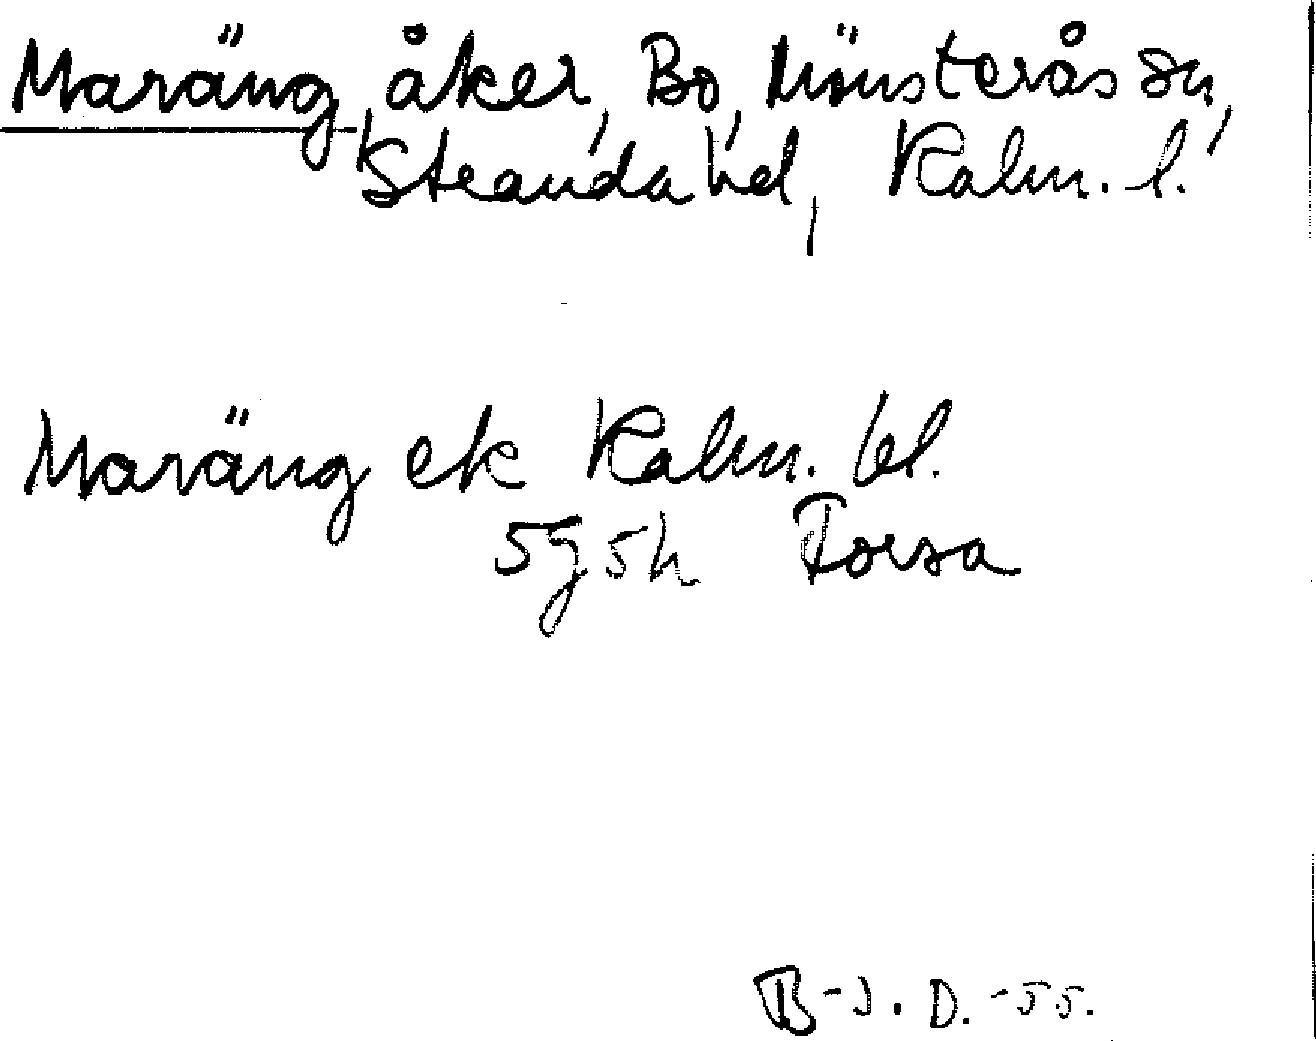 Maräng, åker, Bo, Mönsterås sn,
Stranda hd, Kalm. l.
Maräng ek Kalm. bl.
5g5h Forsa
B-J. D. -55.